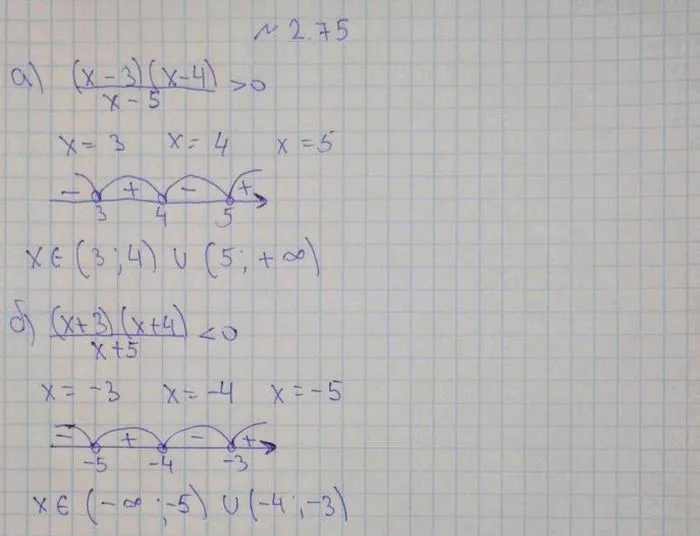 № 2.75
а) (x-3)(x-4)/x-5 >0
x=3 x=4 x=5
- + - +
3 4 5
x∈(3;4)∪(5;+∞)
б) (x+3)(x+4)/x+5 <0
x=-3 x=-4 x=-5
- + - +
-5 -4 -3
x∈(-∞;-5)∪(-4;-3)